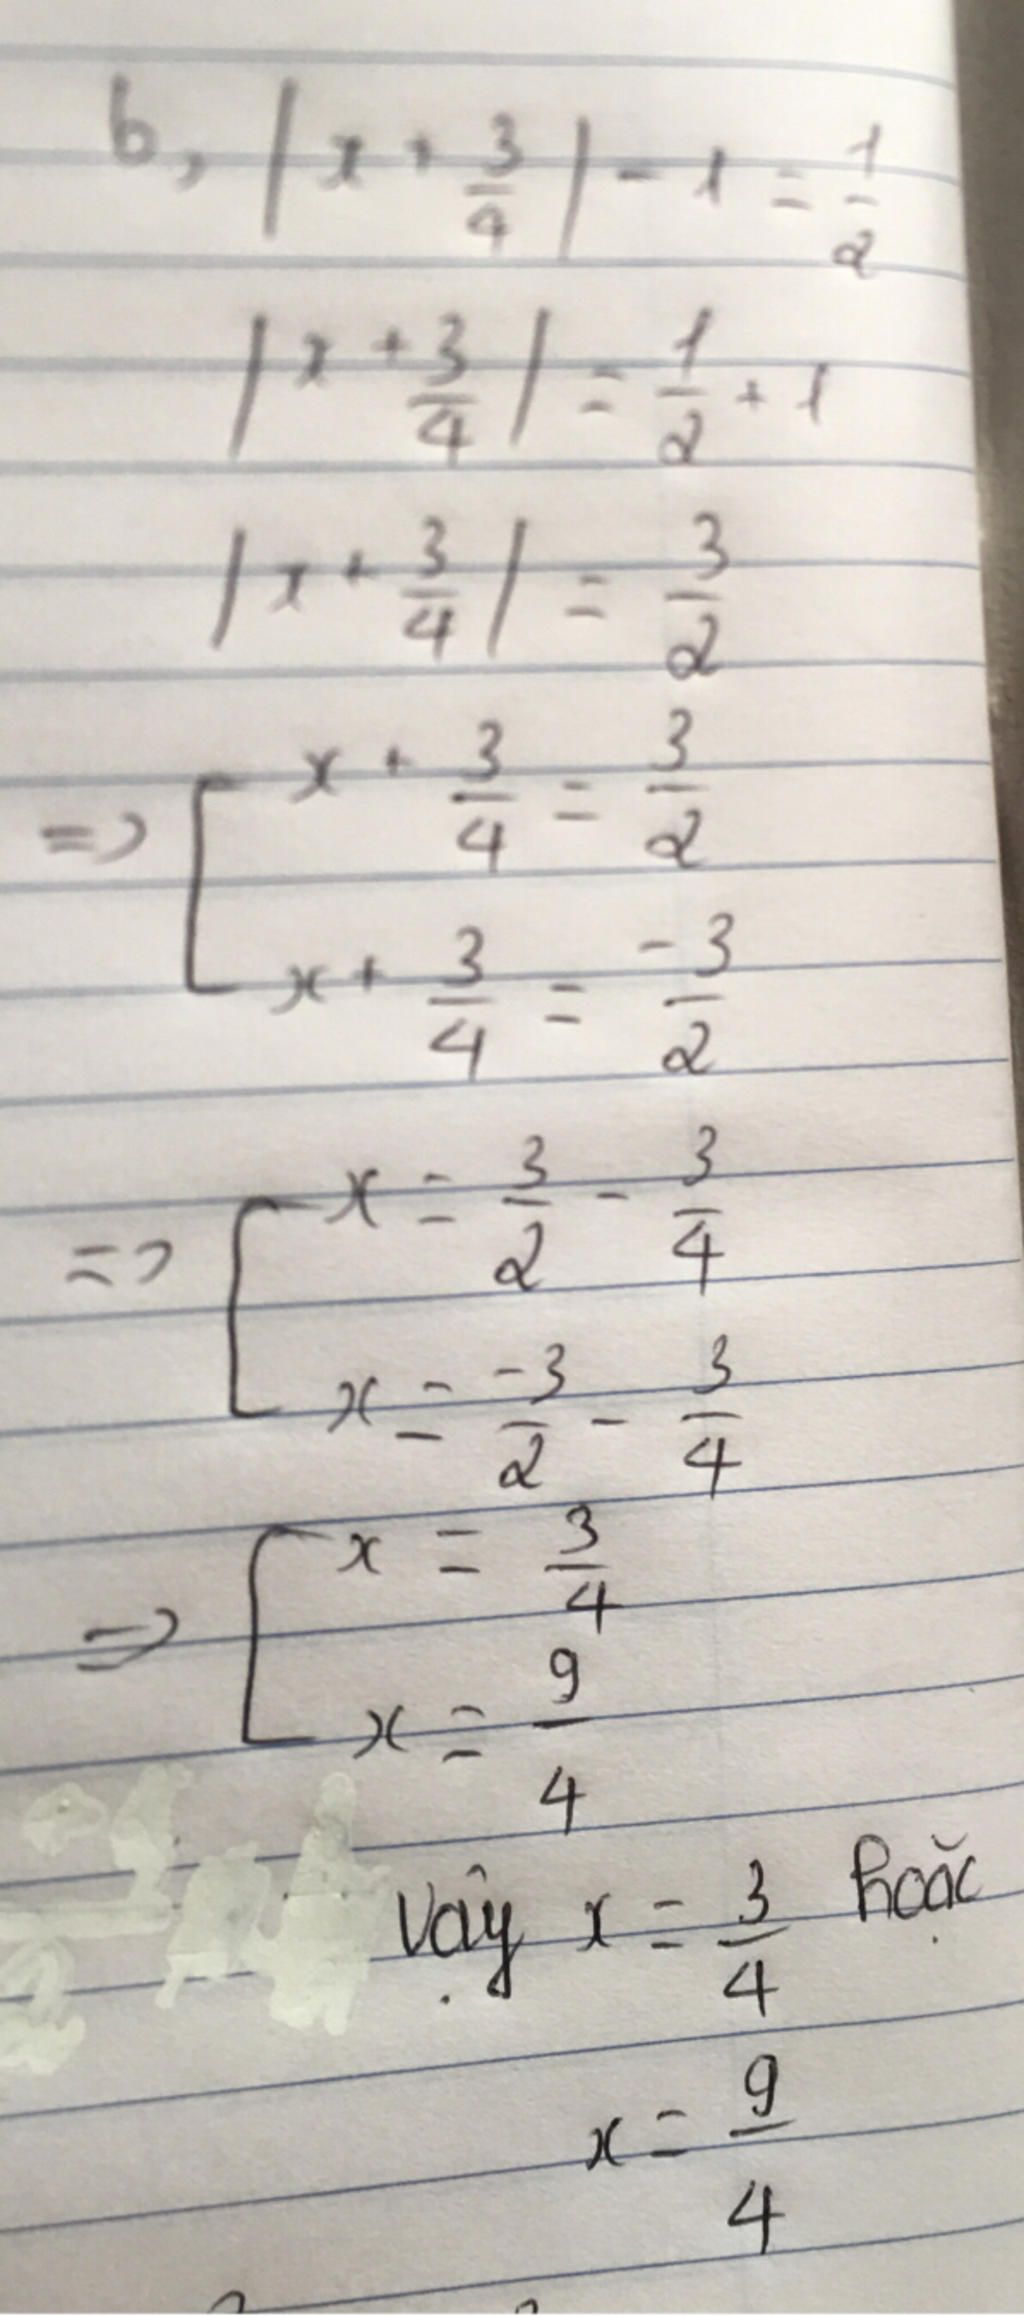 b, |x + 3/4| - 1 = 1/2
|x + 3/4| = 1/2 + 1
|x + 3/4| = 3/2
=> [ x + 3/4 = 3/2
x + 3/4 = -3/2
=> [ x = 3/2 - 3/4
x = -3/2 - 3/4
=> [ x = 3/4
x = 9/4
Vậy x = 3/4 hoặc
x = 9/4